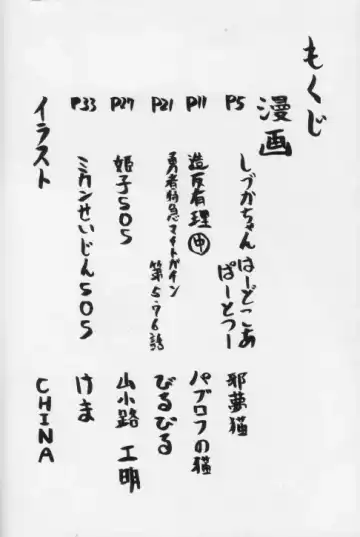 もくじ
漫画
P5 しづかちゃんはーどこあぱーとつー 邪夢猫
P11 造反有理㊥ パブロフの猫
P21 勇者特急マイトガイン第5.76話 びるびる
P27 姫子SOS 山小路 工明
P33 ミカンせいじんSOS けま
イラスト CHINA